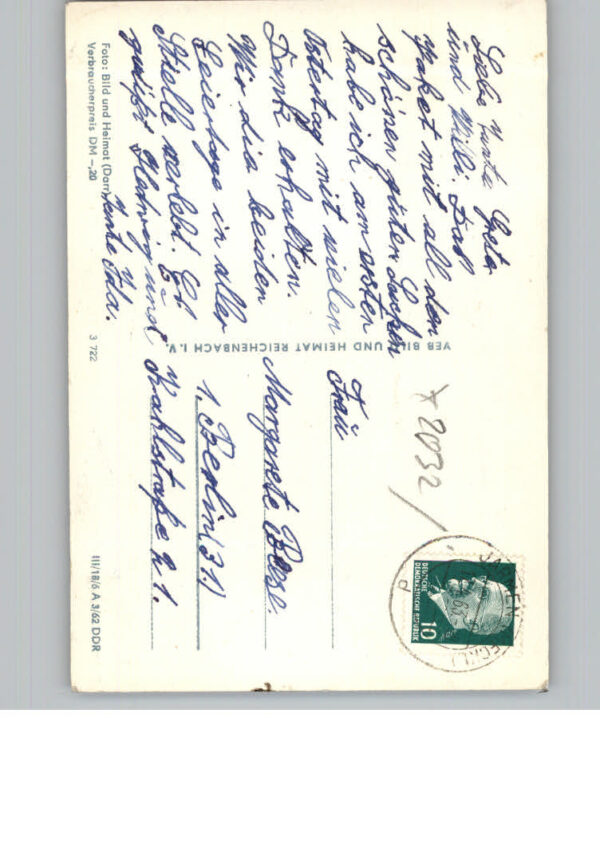 Liebe Tante Greta
und Willi. Das
Paket mit all den
schönen guten Sachen
habe ich am ersten
Ostertag mit vielen
Dank erhalten.
Wir die beiden
Feiertage in aller
Stille verlebt. Es
grüßt Hedwig und
Tante Ida.
Foto: Bild und Heimat
Verbraucherpreis DM -,20
3 722
VEB BILD UND HEIMAT REICHENBACH I. V.
Frau
Margarete
1. Berlin (31.)
III/18/6 A 3/62 DDR
2032
DEUTSCHE
DEMOKRATISCHE REPUBLIK
10